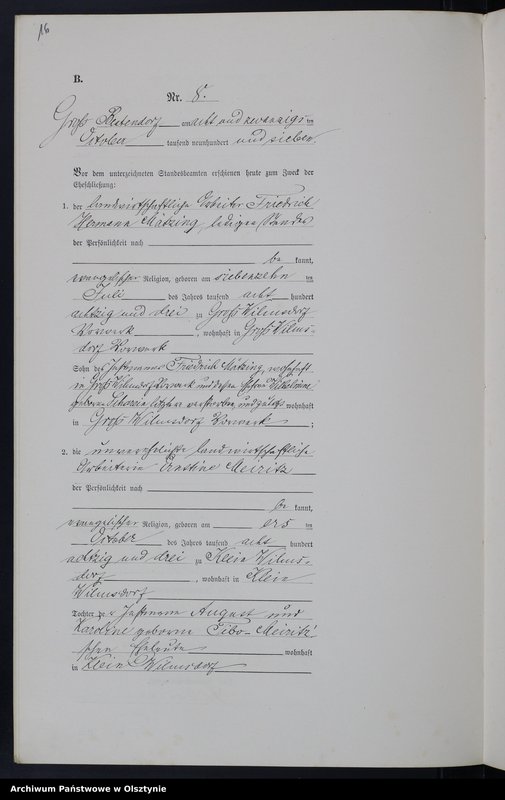 16
B.
Nr. 8.
Groß Bestendorf am acht und zwanzigsten
October tausend neunhundert und sieben.
Vor dem unterzeichneten Standesbeamten erschienen heute zum Zweck der
Eheschließung:
1. der landwirtschaftliche Arbeiter Friedrich
Hermann Mätzing, ledigen Standes
der Persönlichkeit nach
be kannt,
evangelischer Religion, geboren am siebenzehn ten
Juli des Jahres tausend acht hundert
achtzig und drei zu Groß Wilmsdorf
Vorwerk, wohnhaft in Groß Wilms-
dorf Vorwerk
Sohn des Instmanns Friedrich Mätzing, wohnhaft
in Groß Wilmsdorf Vorwerk und dessen Ehefrau Wilhelmine
geborene letztere verstorben und zuletzt wohnhaft
in Groß Wilmsdorf Vorwerk ;
2. die unverehelichte landwirtschaftliche
Arbeiterin Ernstine Meiritz
der Persönlichkeit nach
be kannt,
evangelischer Religion, geboren am ers ten
October des Jahres tausend acht hundert
achtzig und drei zu Klein Wilms-
dorf, wohnhaft in Klein
Wilmsdorf
Tochter der Instmann August und
Karoline geborene Meiritz'
schen Eheleute wohnhaft
in Klein Wilmsdorf
Archiwum Państwowe w Olsztynie